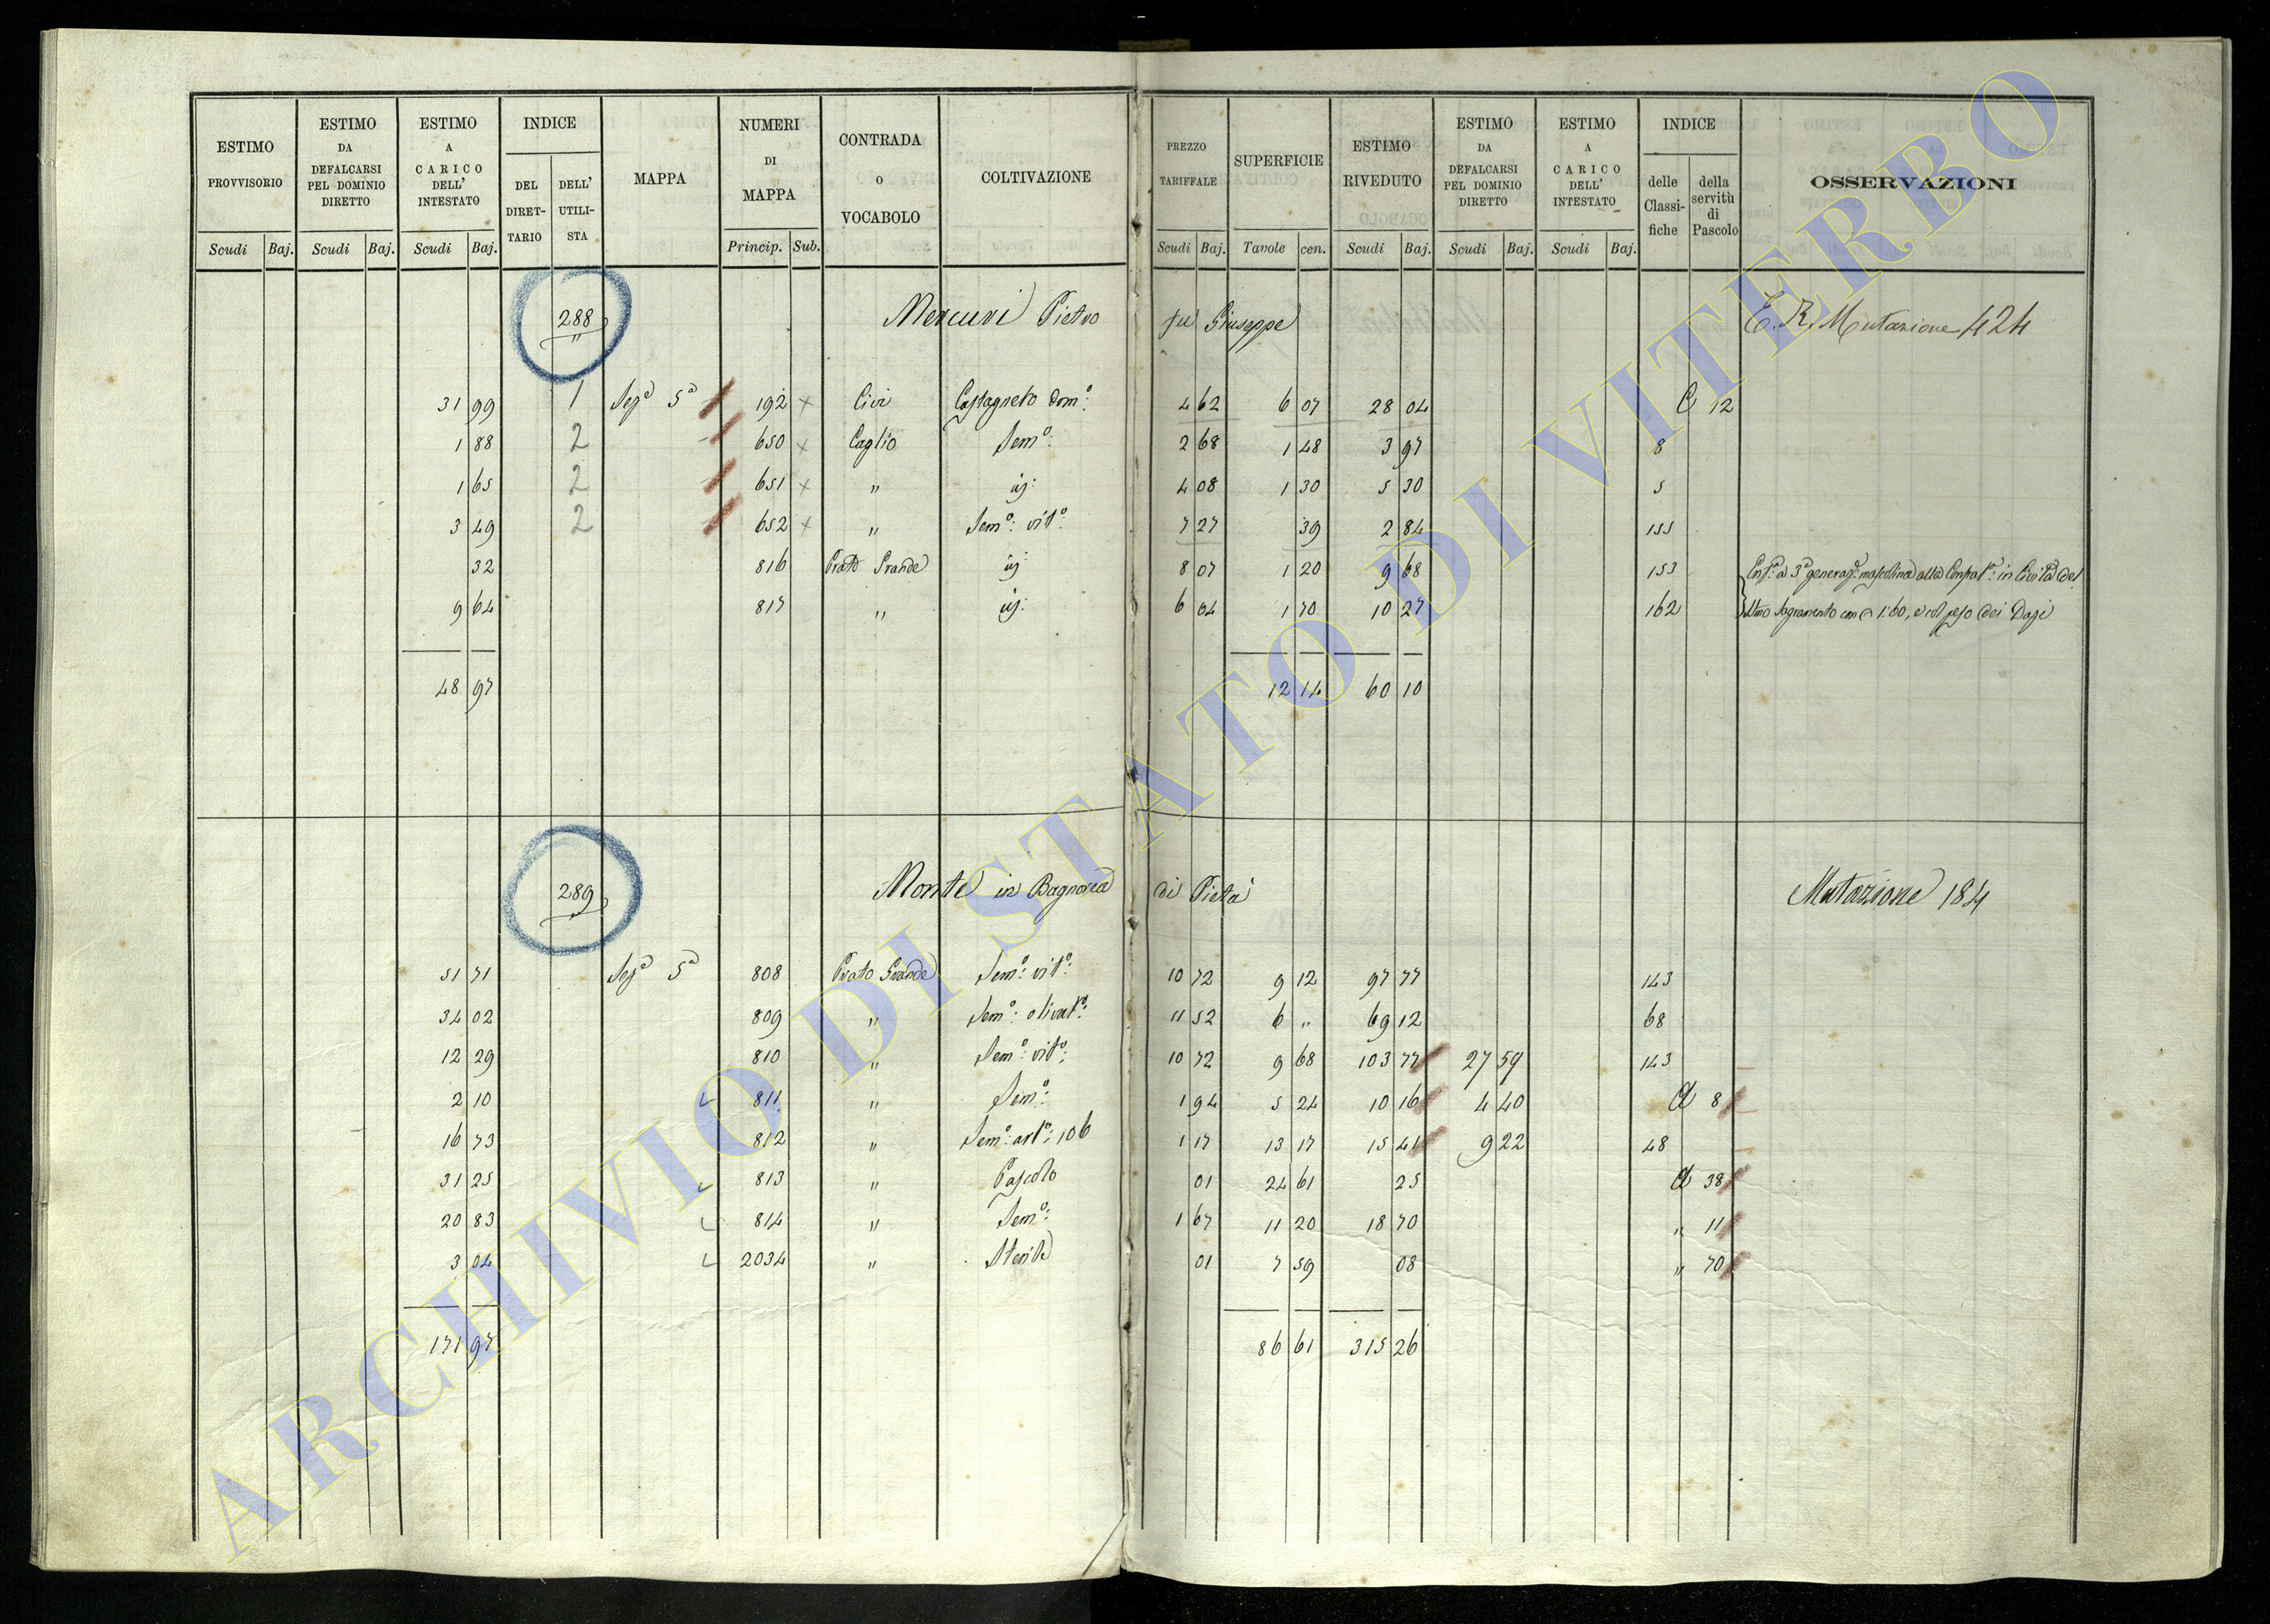 ESTIMO PROVVISORIO | ESTIMO DA DEFALCARSI PEL DOMINIO DIRETTO | ESTIMO A CARICO DELL' INTESTATO | INDICE DEL DIRET-TARIO | DELL' UTILI-STA | MAPPA | NUMERI DI MAPPA | CONTRADA O VOCABOLO | COLTIVAZIONE | PREZZO TARIFFALE | SUPERFICIE | ESTIMO RIVEDUTO | ESTIMO DA DEFALCARSI PEL DOMINIO DIRETTO | ESTIMO A CARICO DELL' INTESTATO | INDICE delle Classi-fiche | della servitù di Pascolo | OSSERVAZIONI
Scudi Baj. Scudi Baj. Scudi Baj. Princip. Sub. Scudi Baj. Tavole cen. Scudi Baj. Scudi Baj. Scudi Baj.
288 Mercuri Pietro fu Giuseppe E. R. Mutazione 424
31 99 1 Sez.ª 5ª 192 × Civi Castagneto dom.º: 4 62 6 07 28 04 C 12
1 88 2 650 × Caglio Sem.º: 2 68 1 48 3 97 8
1 65 2 651 × " id: 4 08 1 30 5 30 5
3 49 2 652 × " Sem.º: vit.º: 7 27 39 2 84 155
32 816 Prato Grande id: 8 07 1 20 9 68 153
9 64 817 " id: 6 04 1 70 10 27 162
48 97 12 14 60 10
289 Monte in Bagnorea di Pietà Mutazione 184
51 71 Sez.ª 5ª 808 Prato Grande Sem.º: vit.º: 10 72 9 12 97 77 143
34 02 809 " Sem.º: olivat.º: 11 52 6 " 69 12 68
12 29 810 " Sem.º: vit.º: 10 72 9 68 103 77 27 59 143
2 10 811 " Sem.º: 1 94 5 24 10 16 4 40 A 8
16 73 812 " Sem.º: 106 1 17 13 17 15 41 9 22 48
31 25 813 " Pascolo 01 24 61 25 A 38
20 83 814 " Sem.º: 1 67 11 20 18 70 " 11
3 04 2034 " Sterile 01 7 59 08 " 70
171 97 86 61 315 26
ARCHIVIO DI STATO DI VITERBO